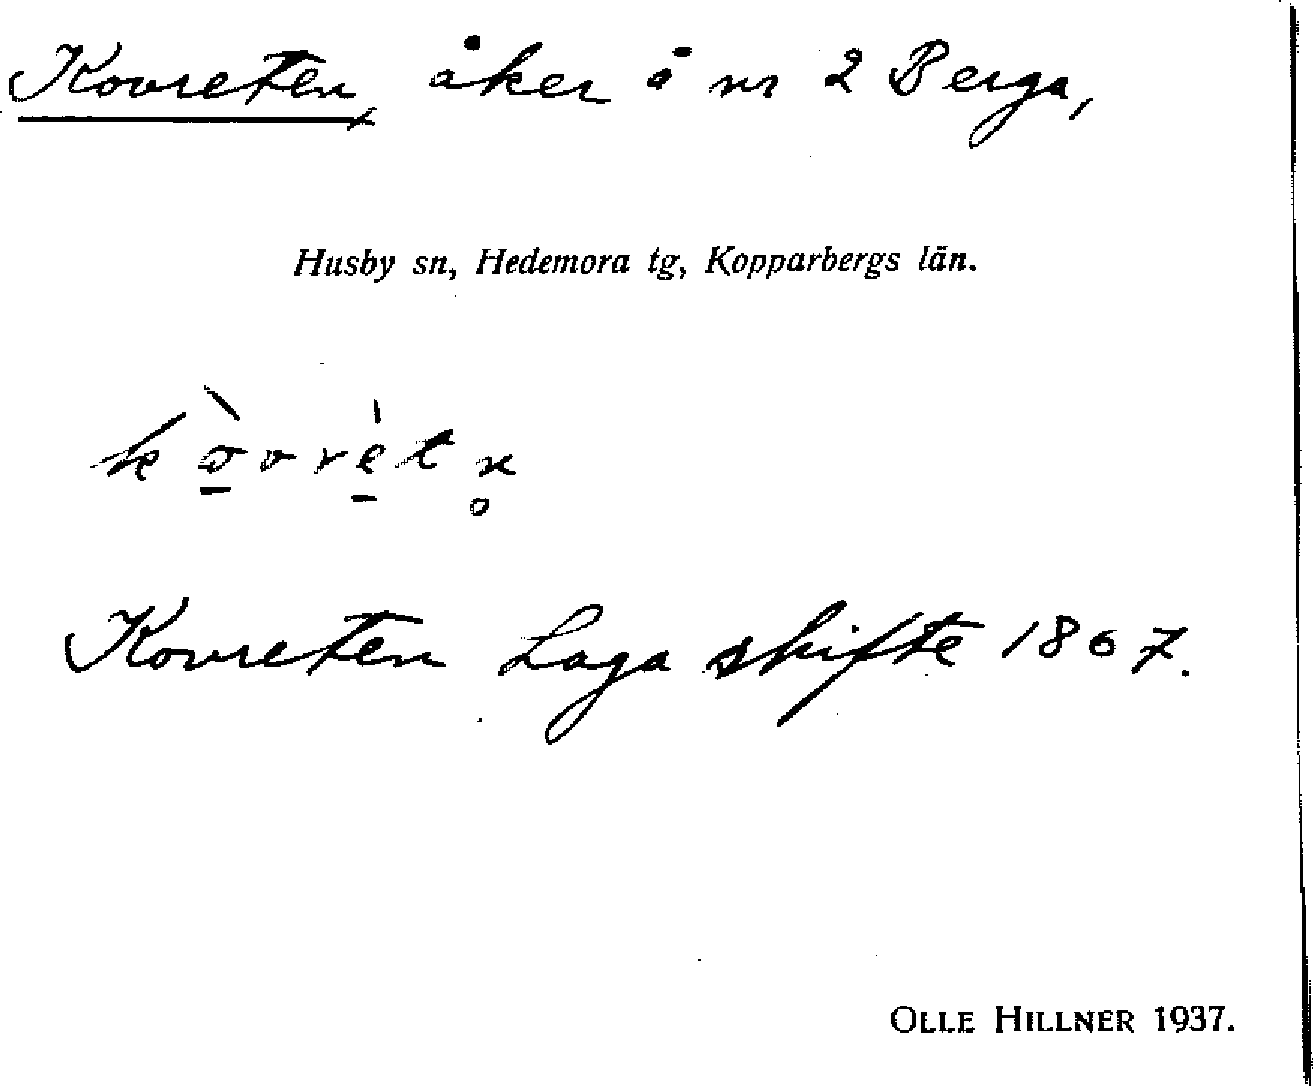 Kovreten, åker å nr 2 Berga,
Husby sn, Hedemora tg, Kopparbergs län.
Kovreten Laga skifte 1867.
OLLE HILLNER 1937.